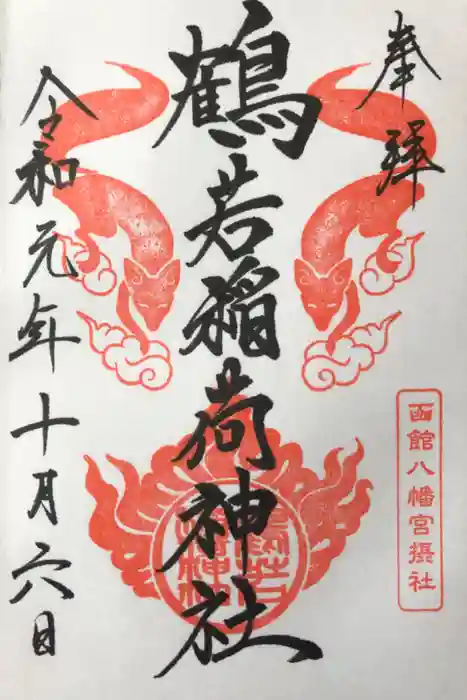 奉拝
鶴若稲荷神社
函館八幡宮摂社
令和元年十月六日